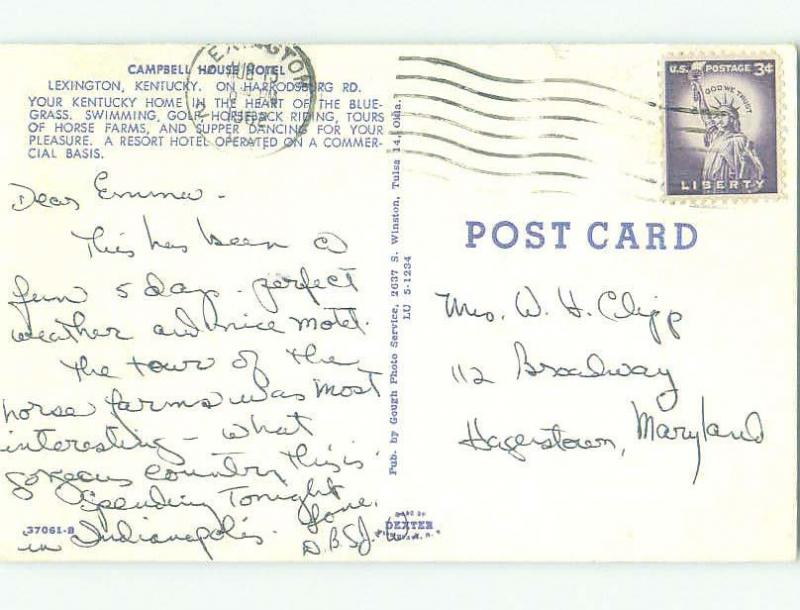 CAMPBELL HOUSE HOTEL
LEXINGTON, KENTUCKY. ON HARRODSBURG RD.
YOUR KENTUCKY HOME IN THE HEART OF THE BLUE-
GRASS. SWIMMING, GOLF, HORSEBACK RIDING, TOURS
OF HORSE FARMS, AND SUPPER DANCING FOR YOUR
PLEASURE. A RESORT HOTEL OPERATED ON A COMMER-
CIAL BASIS.
Dear Emma -
This has been a
fun 5 days - perfect
weather and nice motel.
The tour of the
horse farms was most
interesting - what
gorgeous country this is.
Spending Tonight
in Indianapolis.
Love,
37061-B
Pub. by Gough Photo Service, 2637 S. Winston, Tulsa 14, Okla.
LU 5-1234
DEXTER
LEXINGTON
U.S. POSTAGE 3¢
IN GOD WE TRUST
LIBERTY
POST CARD
Mrs. W. H. Clipp
112 Broadway
Hagerstown, Maryland